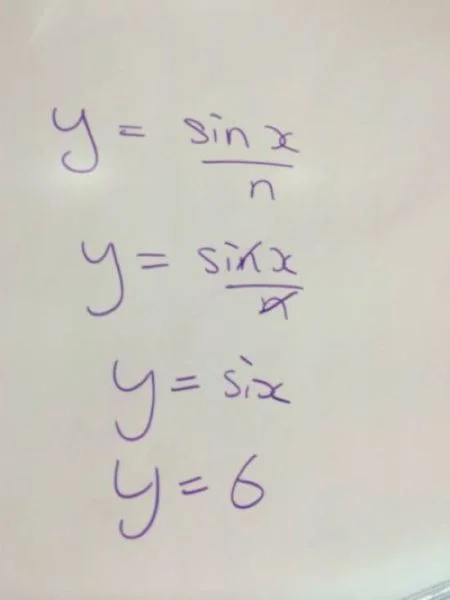 y = sin x / n
y = sin x / n
y = six
y = 6